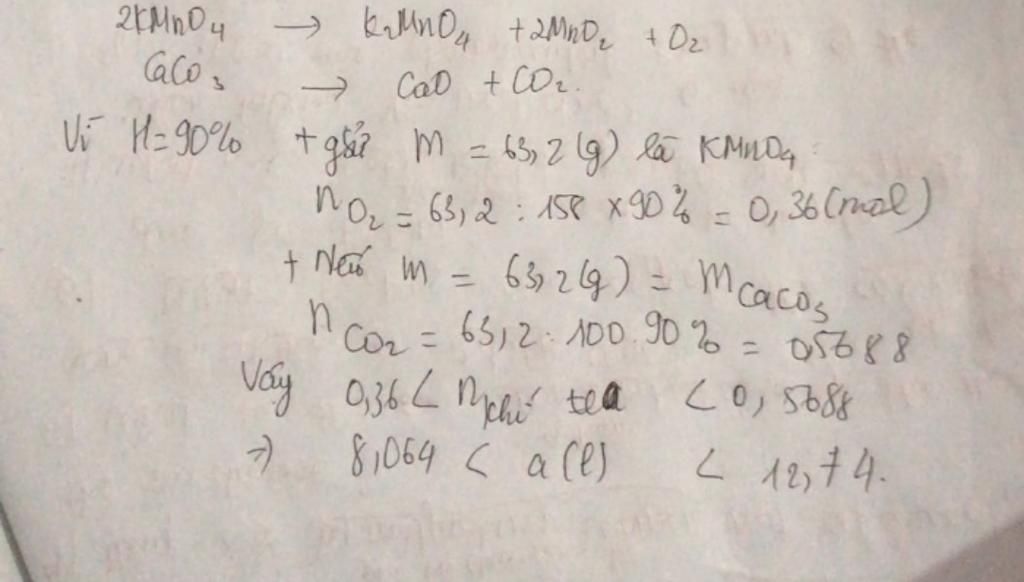 2KMnO4 → K2MnO4 + 2MnO2 + O2
CaCO3 → CaO + CO2.
Vì H=90% + giả sử m = 63,2(g) là KMnO4:
nO2 = 63,2 : 158 × 90% = 0,36(mol)
+ Nếu m = 63,2(g) = mCaCO3
nCO2 = 63,2 : 100 . 90% = 0,5688
Vậy 0,36 < nkhí < 0,5688
→ 8,064 < a(l) < 12,74.